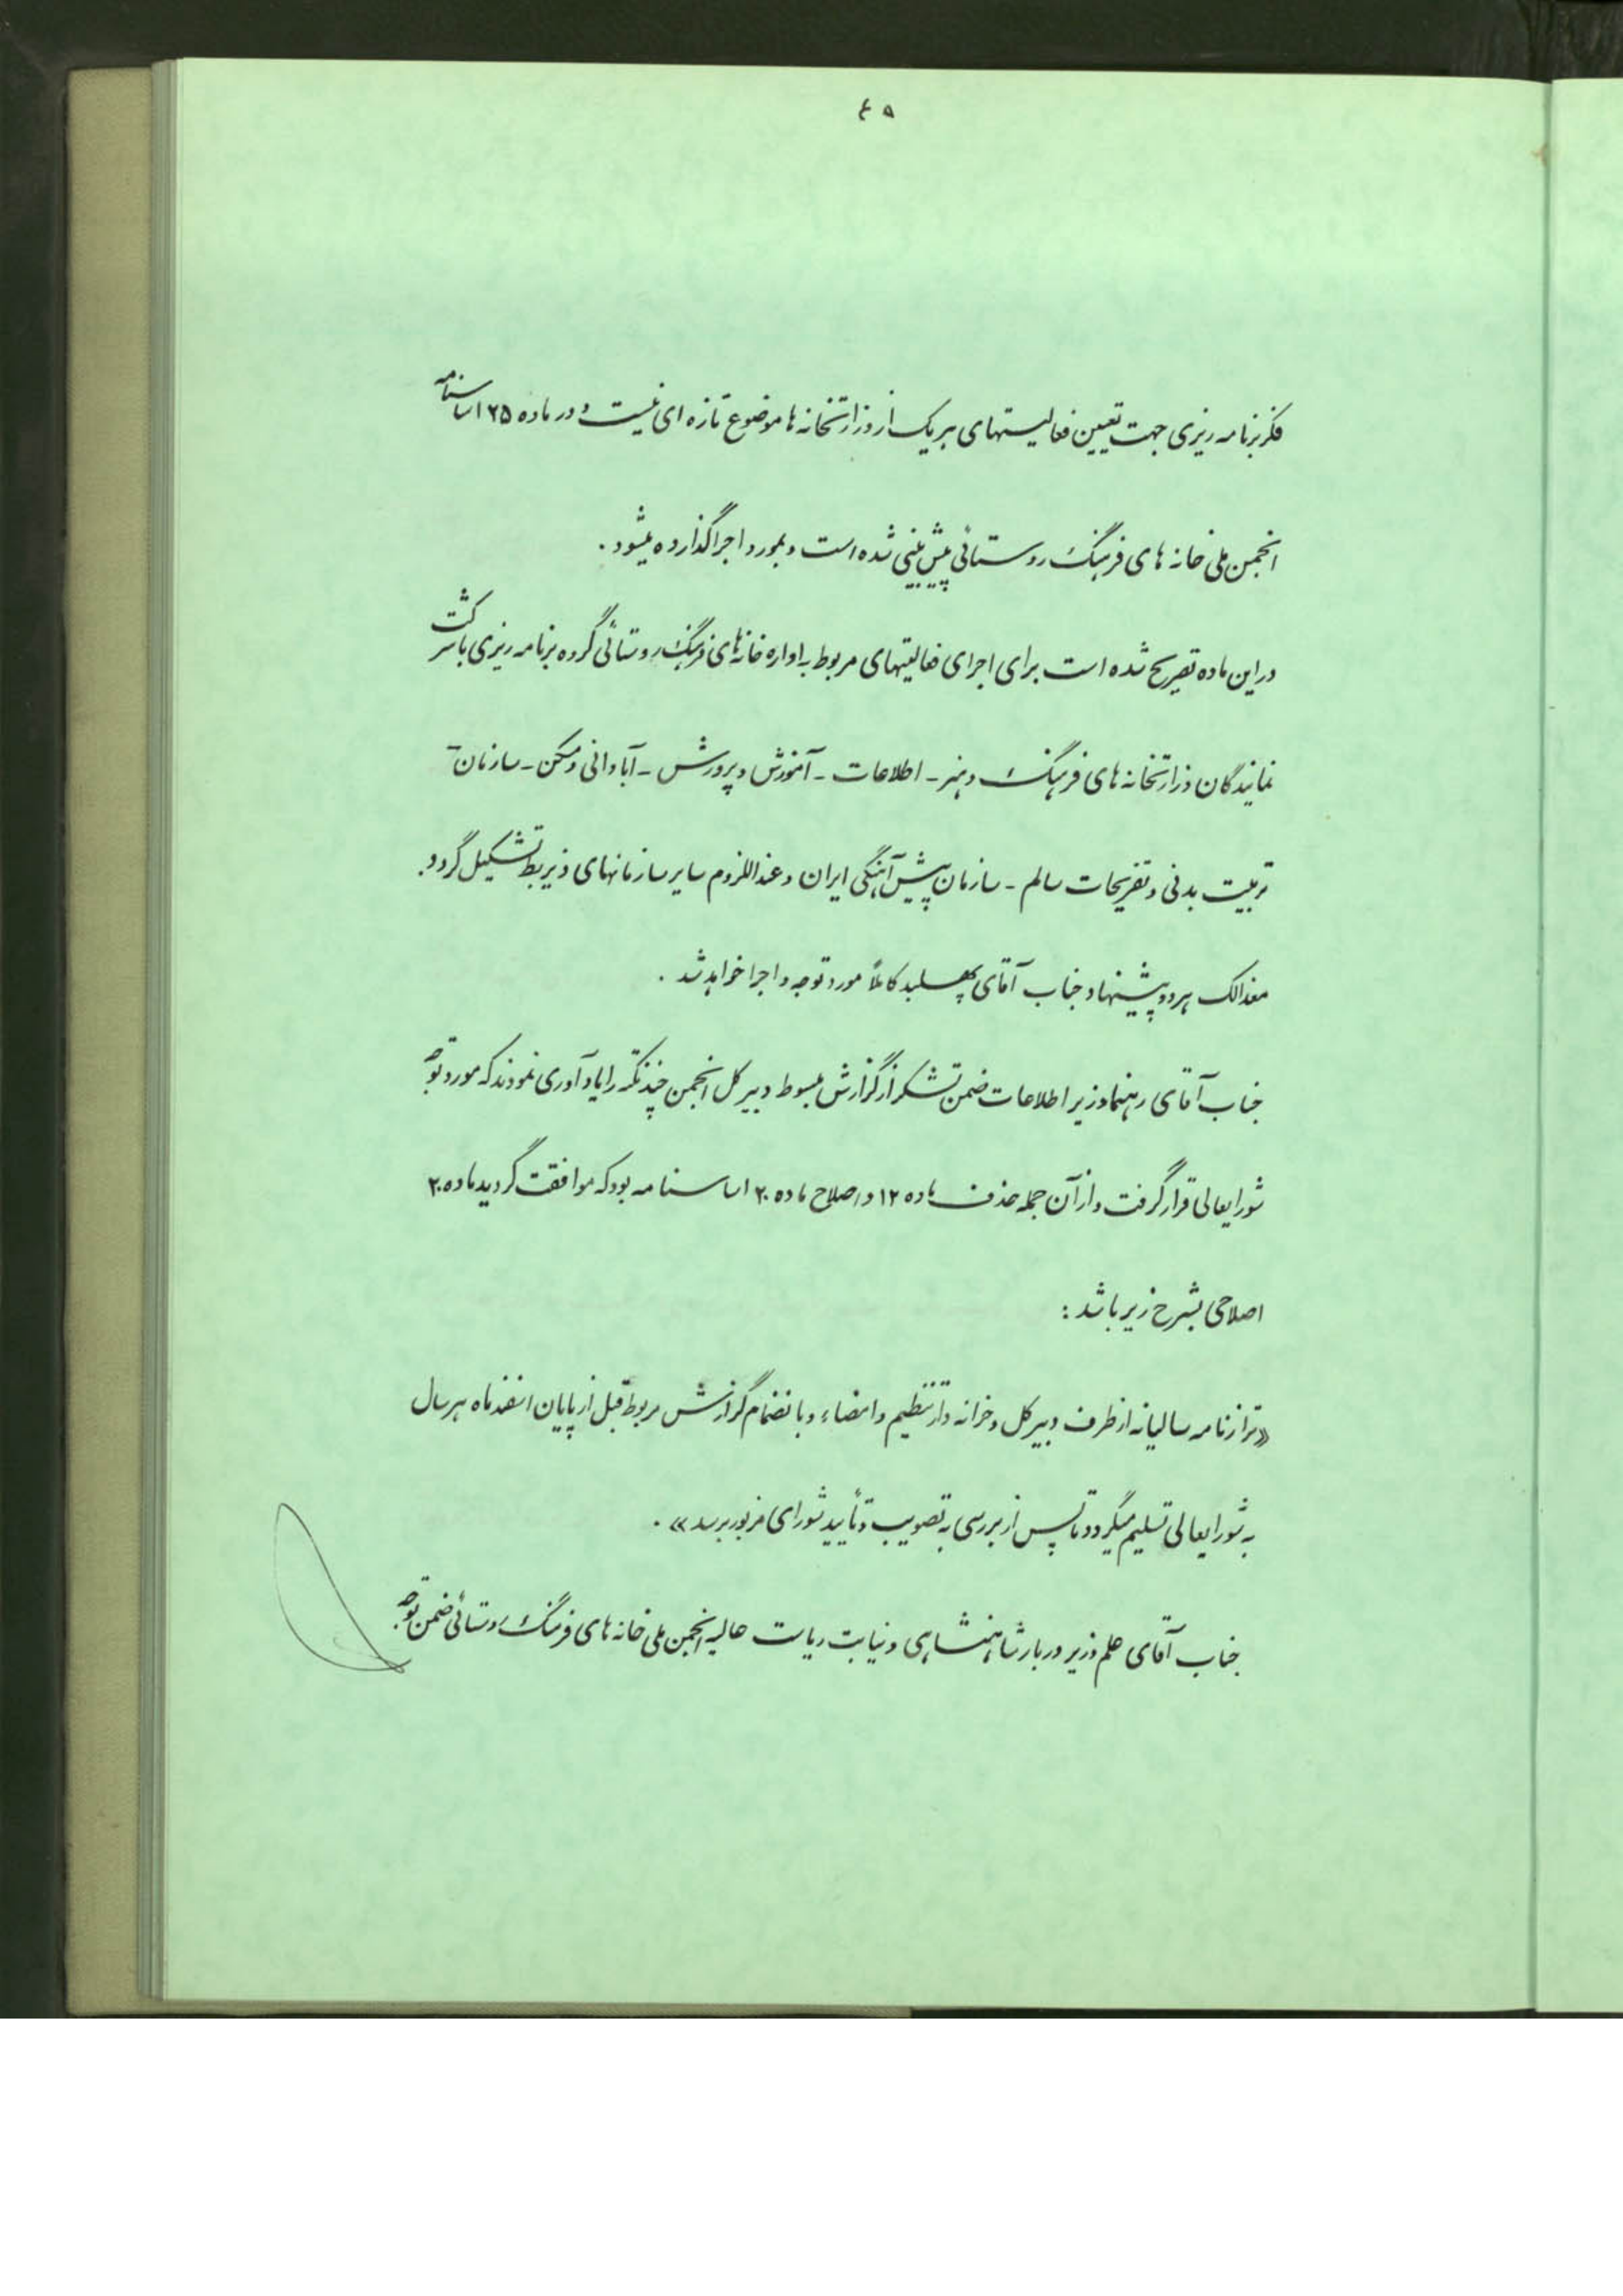 ۴۵
فکر برنامه ریزی جهت تعیین فعالیتهای هر یک از وزارتخانه ها موضوع تازه ای نیست و در ماده ۲۵ اساسنامه
انجمن ملی خانه های فرهنگ روستائی پیش بینی شده است و بمورد اجرا گذارده میشود .
در این ماده تصریح شده است برای اجرای فعالیتهای مربوط به اداره خانه های فرهنگ روستائی گروه برنامه ریزی با شرکت
نمایندگان وزارتخانه های فرهنگ و هنر - اطلاعات - آموزش و پرورش - آبادانی و مسکن - سازمان
تربیت بدنی و تفریحات سالم - سازمان پیش آهنگی ایران و عنداللزوم سایر سازمانهای ذیربط تشکیل گردد .
معذالک هر دو پیشنهاد جناب آقای پهلبد کاملاً مورد توجه و اجرا خواهد شد .
جناب آقای رهنما وزیر اطلاعات ضمن تشکر از گزارش مبسوط دبیر کل انجمن چند نکته را یادآوری نمودند که مورد توجه
شورایعالی قرار گرفت و از آن جمله حذف ماده ۱۲ و اصلاح ماده ۲۰ اساسنامه بود که موافقت گردید ماده ۲۰
اصلاحی بشرح زیر باشد :
« ترازنامه سالیانه از طرف دبیر کل و خزانه دار تنظیم و امضاء و بانضمام گزارش مربوط قبل از پایان اسفند ماه هر سال
به شورایعالی تسلیم میگردد تا پس از بررسی به تصویب و تأیید شورای مزبور برسد » .
جناب آقای علم وزیر دربار شاهنشاهی و نیابت ریاست عالیه انجمن ملی خانه های فرهنگ روستائی ضمن توجه